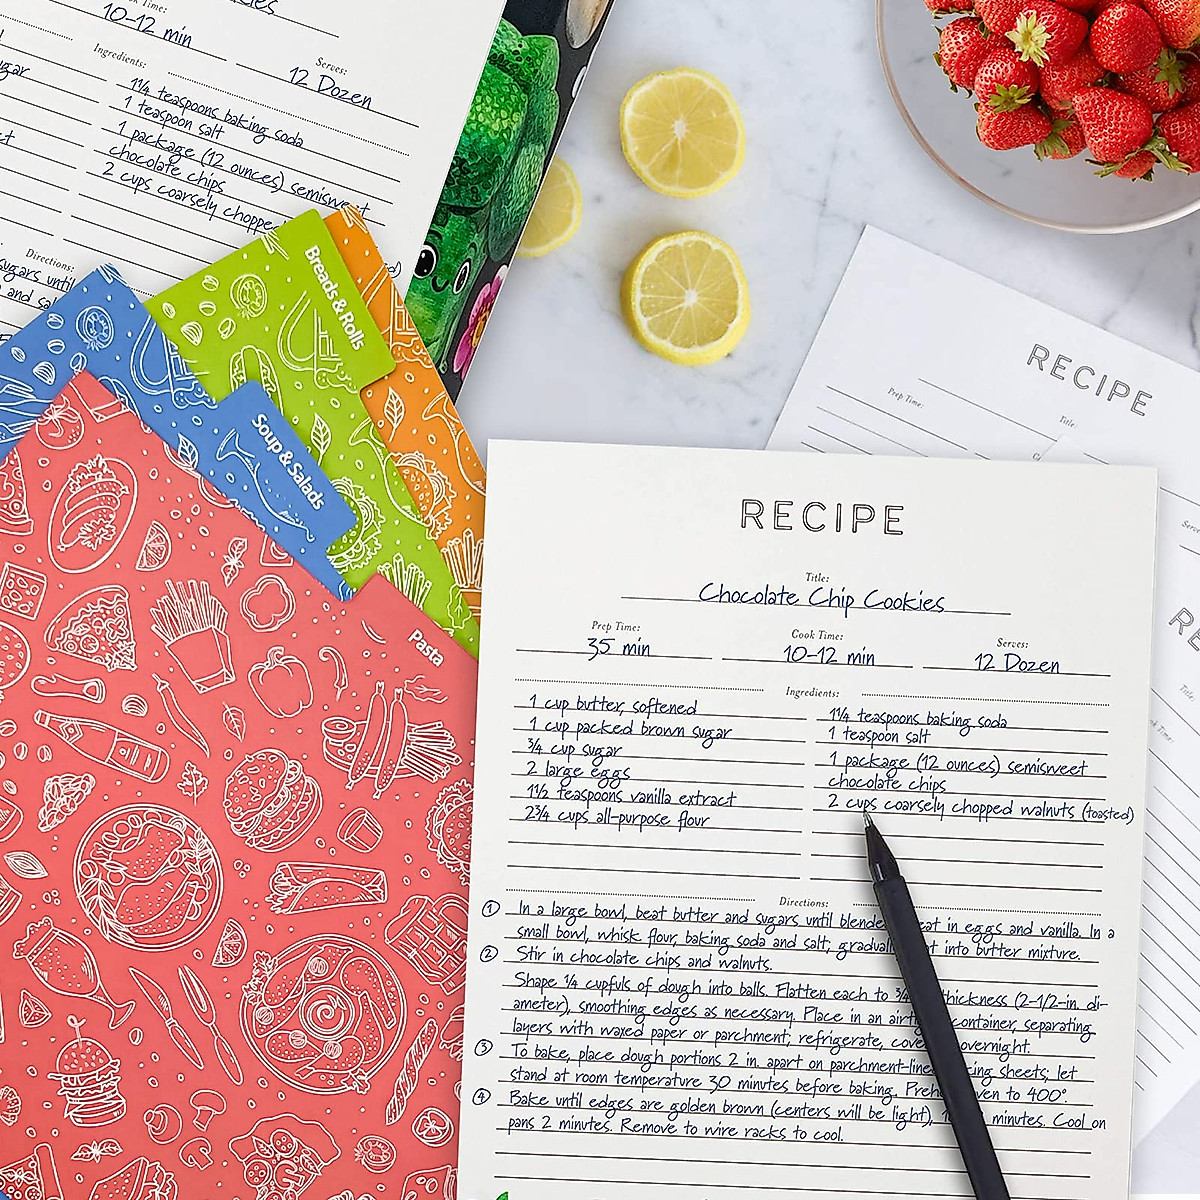 Time:
10-12 min
Serves:
12 Dozen
Ingredients:
1¼ teaspoons baking soda
1 teaspoon salt
1 package (12 ounces) semisweet
chocolate chips
2 cups coarsely chopped
Directions:
sugars until
and
Breads & Rolls
Soup & Salads
Pasta
RECIPE
Prep Time:
Title:
RECIPE
Title:
Chocolate Chip Cookies
Prep Time:
35 min
Cook Time:
10-12 min
Serves:
12 Dozen
Ingredients:
1 cup butter, softened
1 cup packed brown sugar
¾ cup sugar
2 large eggs
1½ teaspoons vanilla extract
2¾ cups all-purpose flour
1¼ teaspoons baking soda
1 teaspoon salt
1 package (12 ounces) semisweet
chocolate chips
2 cups coarsely chopped walnuts (toasted)
Directions:
① In a large bowl, beat butter and sugars until blende eat in eggs and vanilla. In a
small bowl, whisk flour, baking soda and salt; graduall at into butter mixture.
② Stir in chocolate chips and walnuts.
Shape ¼ cupfuls of dough into balls. Flatten each to ¾ thickness (2-1/2-in. di-
ameter), smoothing edges as necessary. Place in an airt container, separating
layers with waxed paper or parchment; refrigerate, cove overnight.
③ To bake, place dough portions 2 in. apart on parchment-line ing sheets; let
stand at room temperature 30 minutes before baking. Preh ven to 400°.
④ Bake until edges are golden brown (centers will be light), 1 minutes. Cool on
pans 2 minutes. Remove to wire racks to cool.